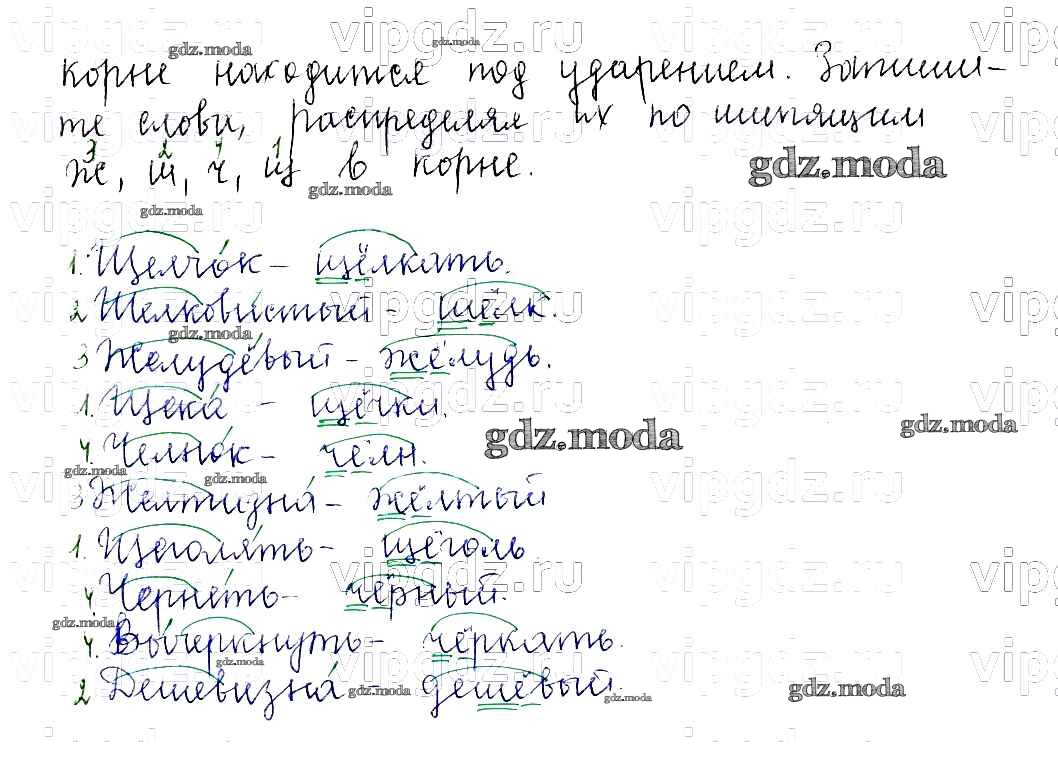 корне находится под ударением. Запиши-
те слова, распределяя их по шипящим
3 2 4 1
ж, ш, ч, щ в корне.
1. Щелчо́к – щёлкать.
2 Шелкови́стый – шёлк.
3 Желудёвый – жёлудь.
1. Щека́ – щёчки.
4. Челно́к – чёлн.
3 Желтизна́ – жёлтый
1. Щеголя́ть – щёголь.
4. Черне́ть – чёрный.
4. Вы́черкнуть – чёркать.
2 Дешевизна́ – дешёвый.
gdz.moda
vipgdz.ru